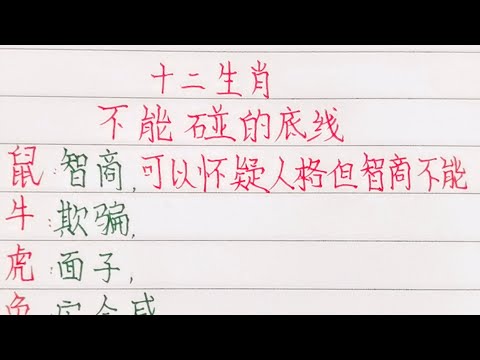 十二生肖
不能碰的底线
鼠:智商,可以怀疑人格但智商不能
牛:欺骗,
虎:面子,